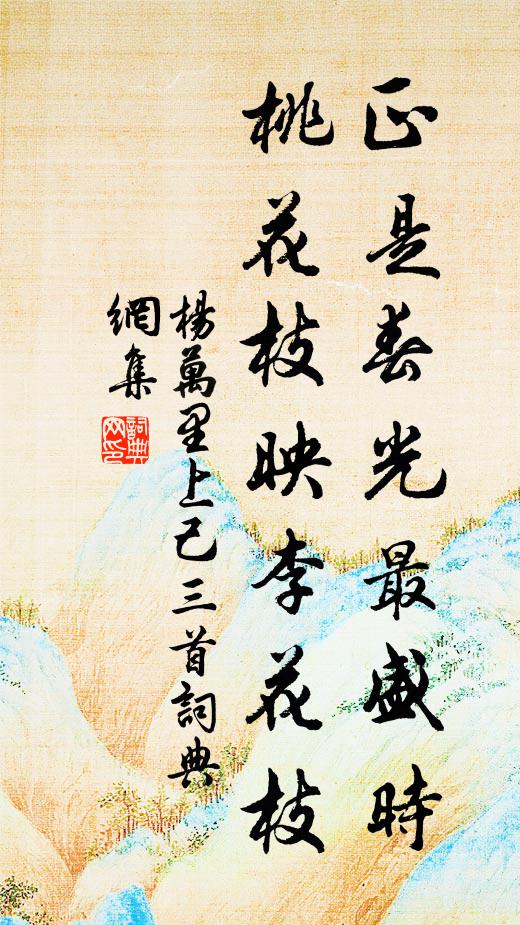 正是春光最盛時
桃花枝映李花枝
楊萬里上巳三首詞典
網集
詞典
网印